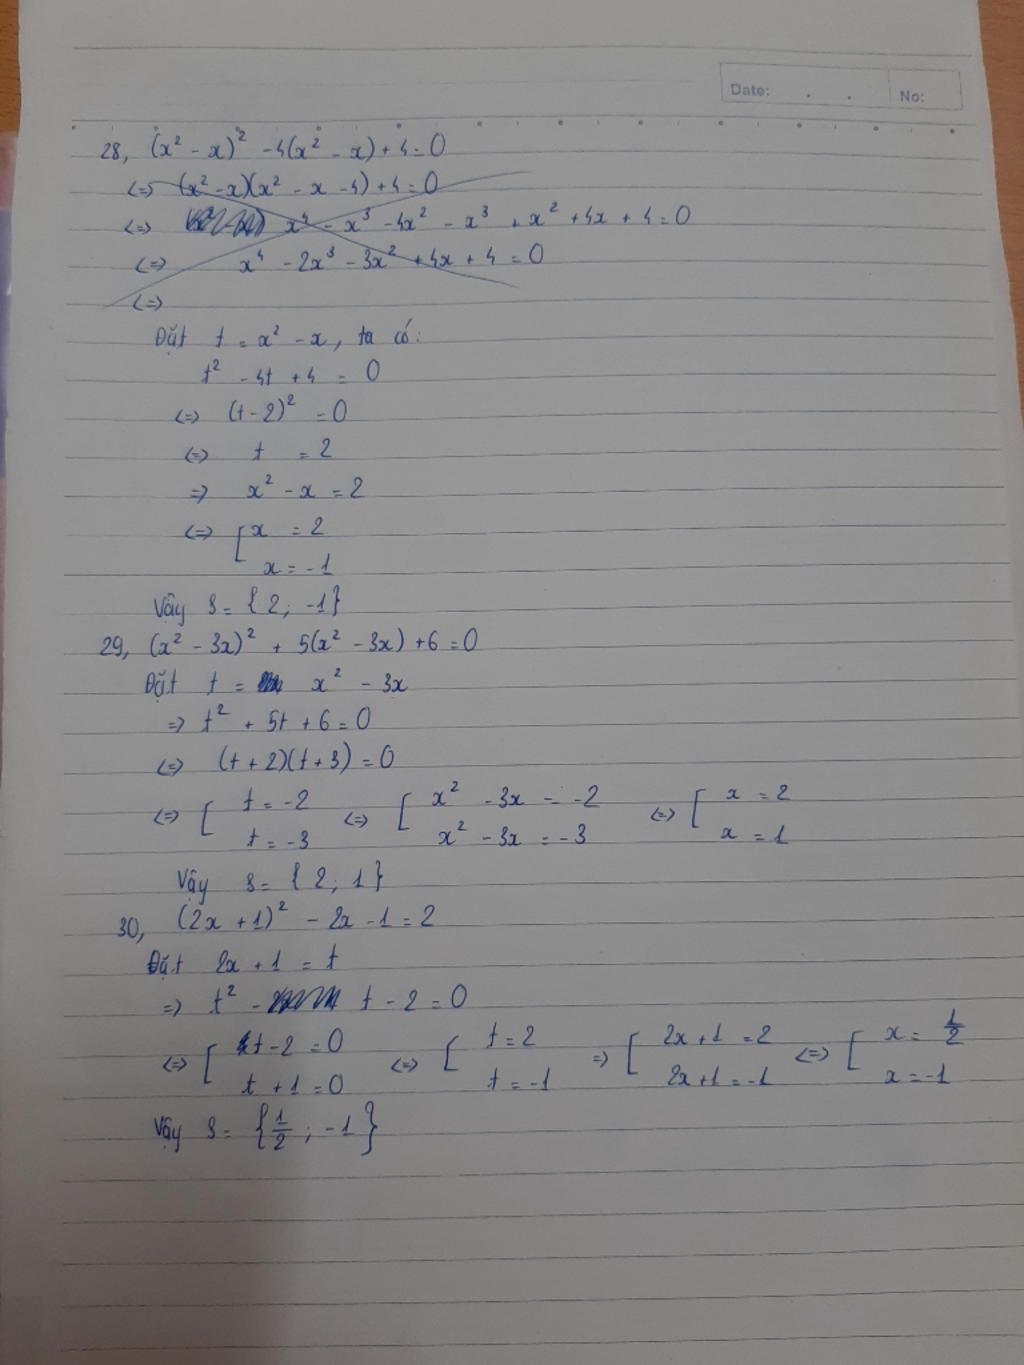 Date: . . No:
28, (x² - x)² - 4(x² - x) + 4 = 0
<=> (x² - x)(x² - x - 4) + 4 = 0
<=> x⁴ - x³ - 4x² - x³ + x² + 4x + 4 = 0
<=> x⁴ - 2x³ - 3x² + 4x + 4 = 0
<=>
Đặt t = x² - x, ta có:
t² - 4t + 4 = 0
<=> (t - 2)² = 0
<=> t = 2
=> x² - x = 2
<=> [ x = 2
x = -1
Vậy S = {2; -1}
29, (x² - 3x)² + 5(x² - 3x) + 6 = 0
Đặt t = x² - 3x
=> t² + 5t + 6 = 0
<=> (t + 2)(t + 3) = 0
<=> [ t = -2 <=> [ x² - 3x = -2 <=> [ x = 2
t = -3 x² - 3x = -3 x = 1
Vậy S = {2; 1}
30, (2x + 1)² - 2x - 1 = 2
Đặt 2x + 1 = t
=> t² - t - 2 = 0
<=> [ t - 2 = 0 <=> [ t = 2 => [ 2x + 1 = 2 <=> [ x = 1/2
t + 1 = 0 t = -1 2x + 1 = -1 x = -1
Vậy S = {1/2; -1}